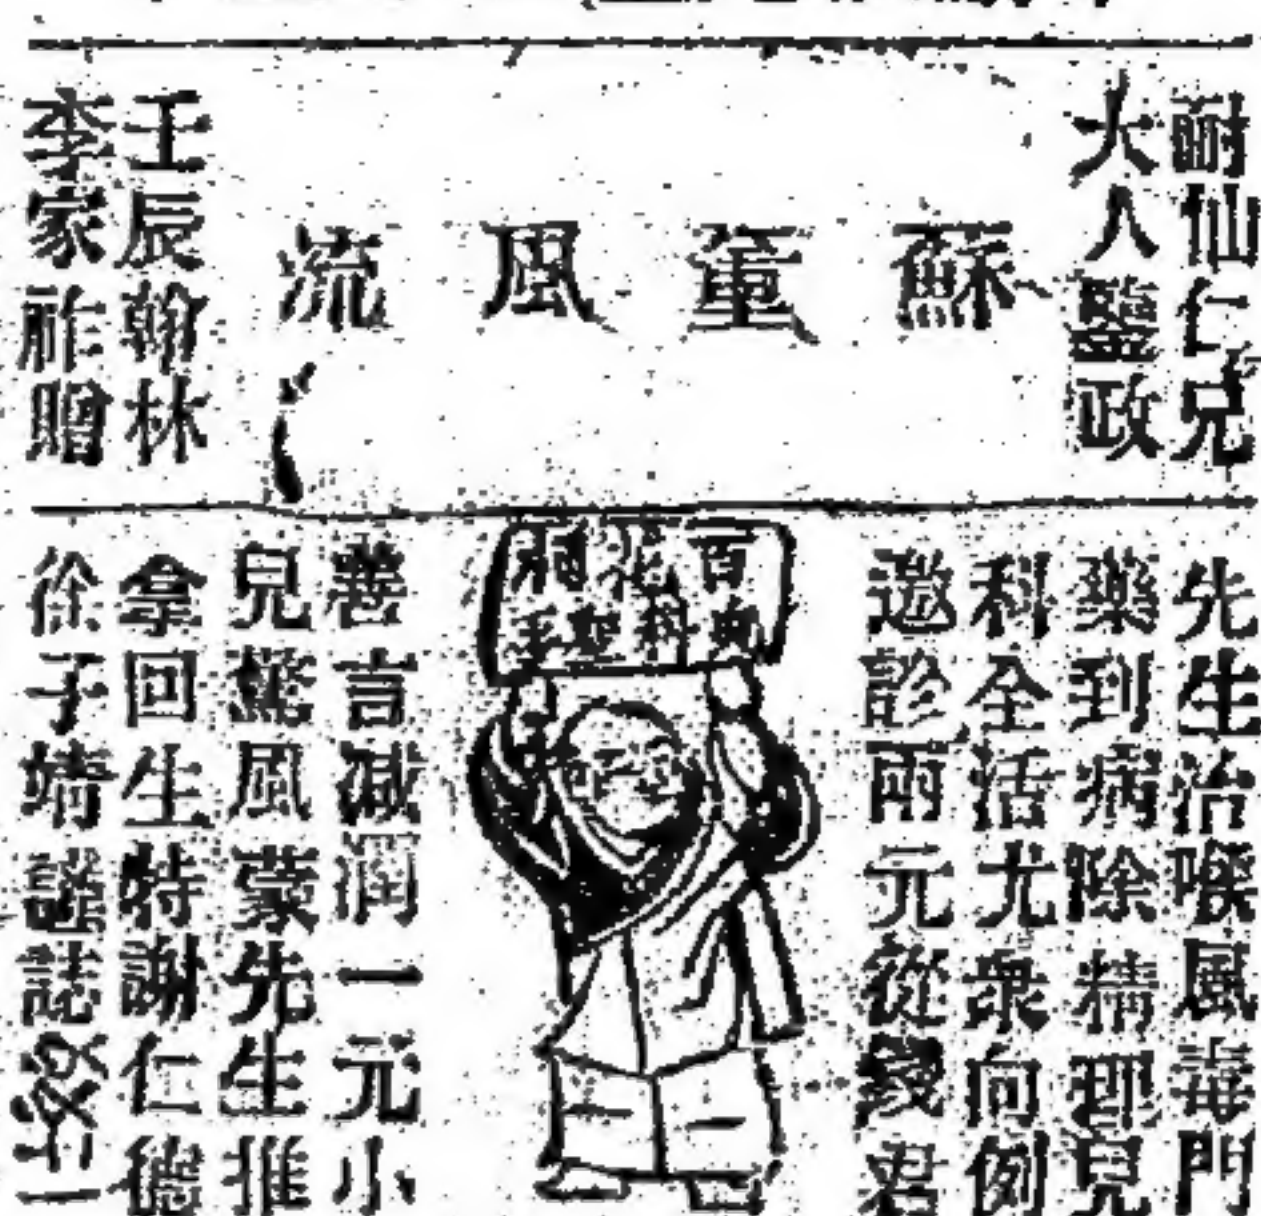 耐仙仁兄
大人鑒政
蘇董風流
壬辰翰林
李家祚贈
先生治喉風毒門
藥到病除精理兒
科全活尤衆向例
邀診兩元從錢君
百花祠
典科聖手
善言减潤一元小
兒驚風蒙先生推
拿回生特謝仁德
徐子靖謹誌